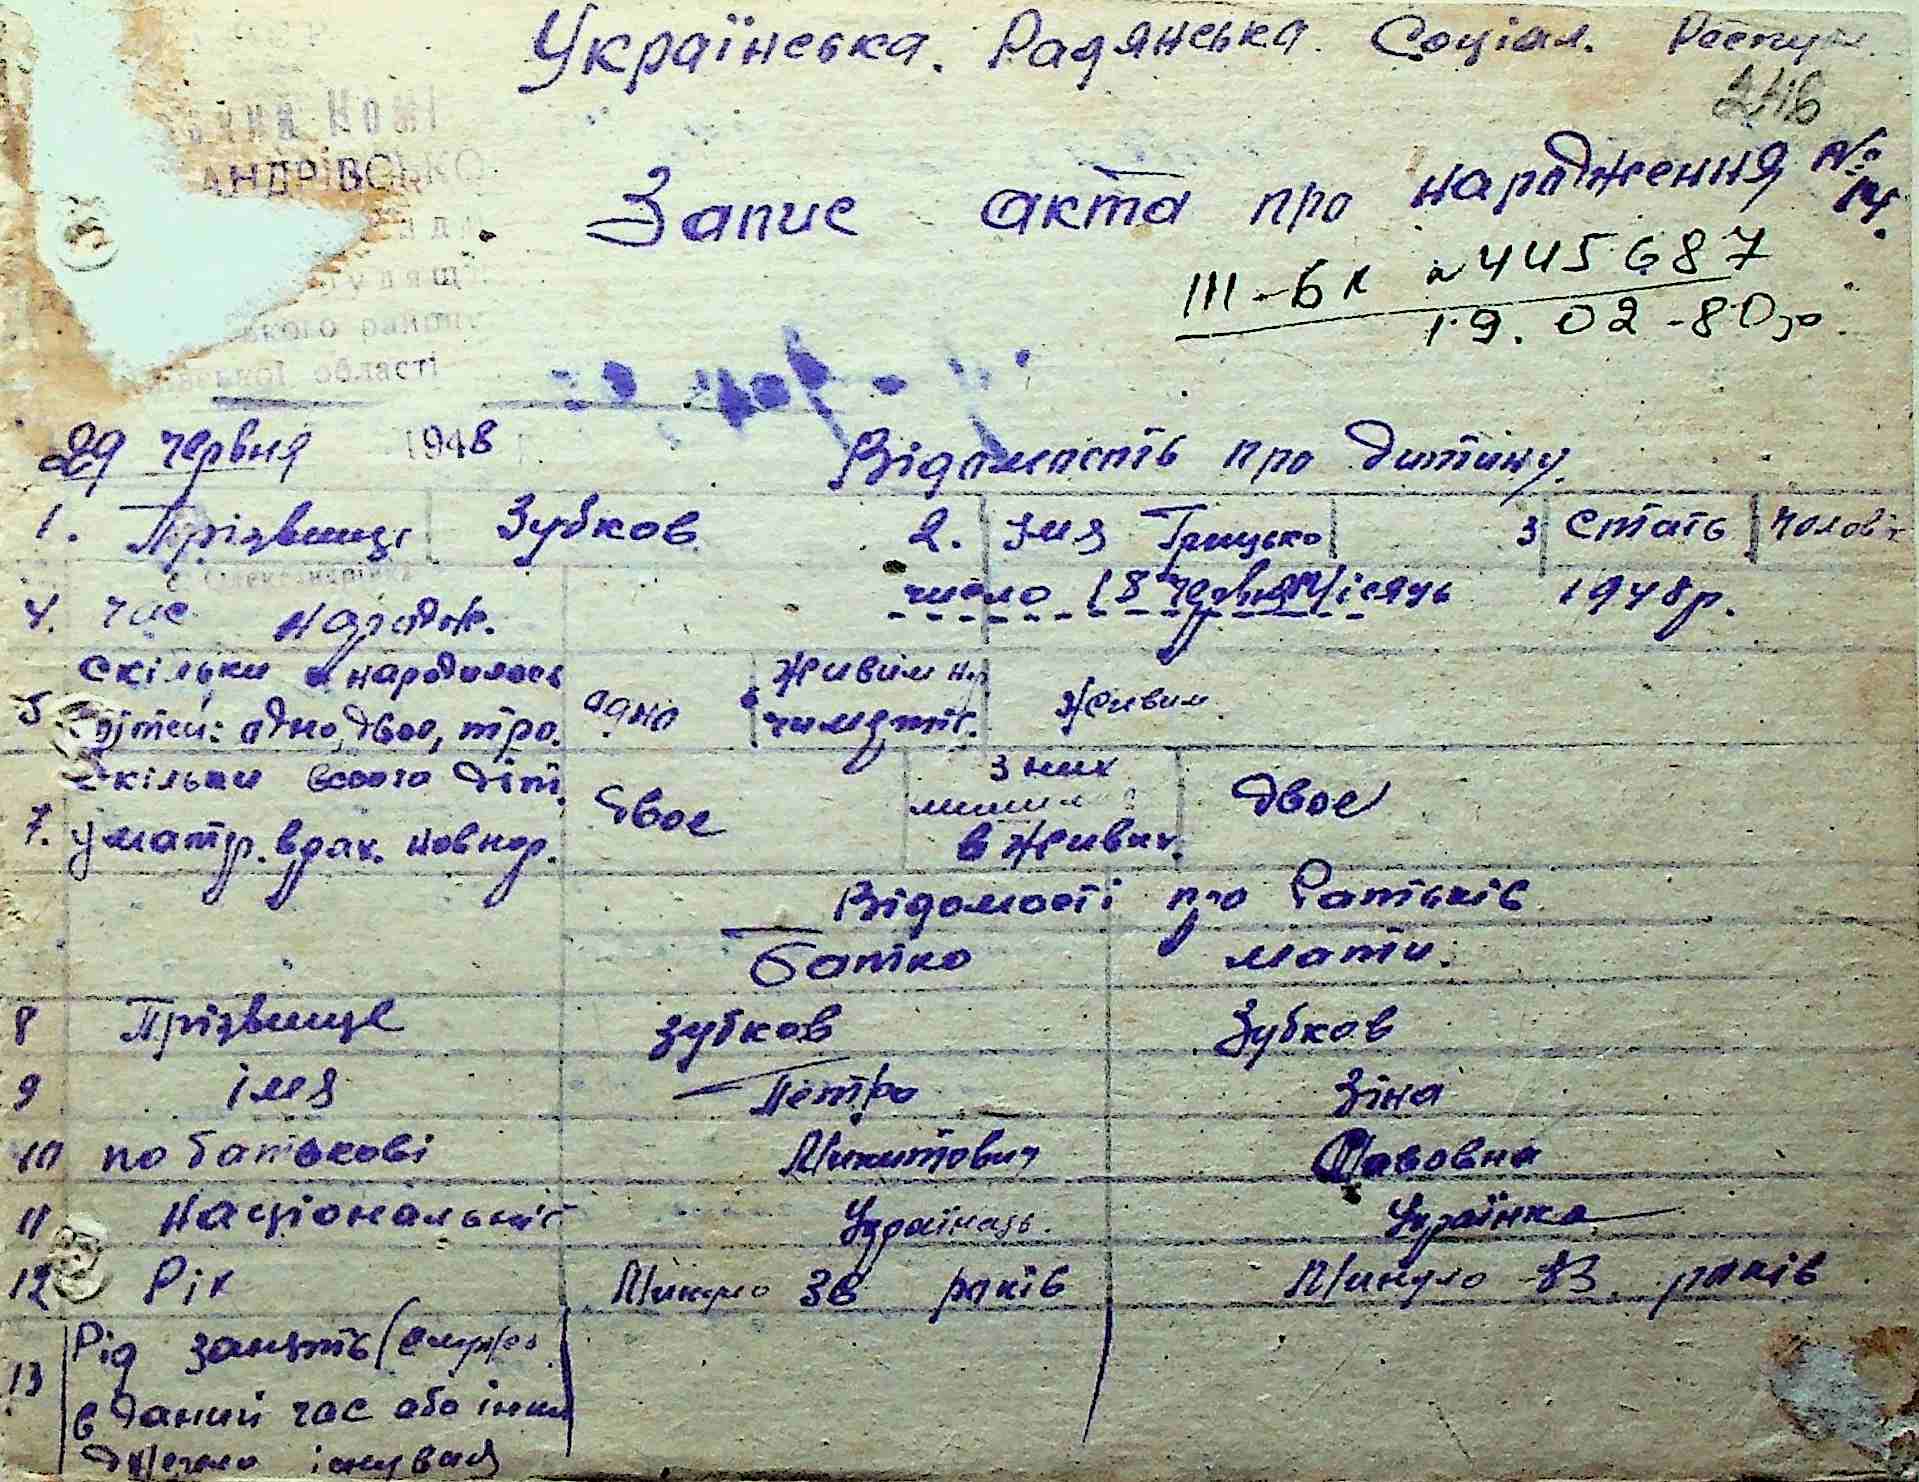 Українська. Радянська. Соціал. Респуб.
246
АНДРІВСЬКО
Запис акта про народження №
14.
III-БК №445687
19.02-80р.
ького району
області
29 червня 1948
Відомость про дитину.
1. Прізвище Зубков 2. імя Грицько 3 Стать чолов
4. час народж. число 18 червня Місяць 1948р.
5 Скільки народилось дітей: одно, двое, тро. одно живим чи мертв. живим
7. Скільки всього діт. у матр. врах. новнор. двое з них лишил в живих. двое
Відомості про батьків
батко мати.
8 Прізвище Зубков Зубков
9 імя Петро Зіна
10 по батькові Микитович Савовна
11 Національніст Українець. Українка
12 Рік Минуло 38 років Минуло років
13 Рід занять (служба
в даний час або інше
джерело існуваня